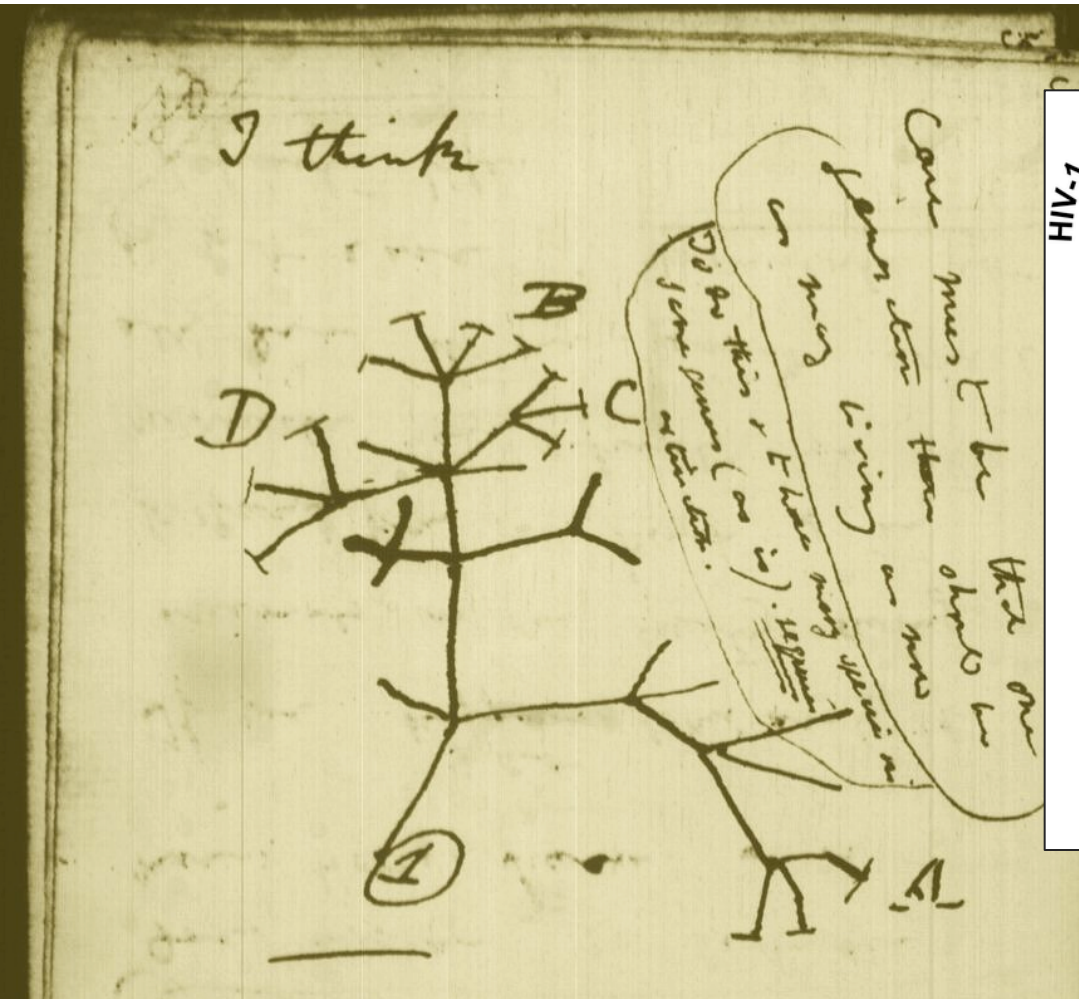 I think
B
D
C
Case must be that one
generation then should be
as many living as now
To do this & to have many species in
same genus (as is). requires
extinction.
A
1
HIV-1